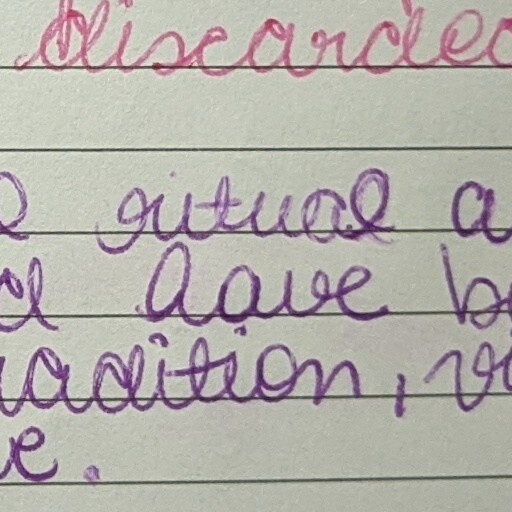 discarded
ritual a
have b
adition, vi
e.